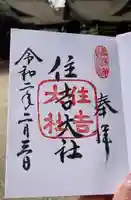 奉拝
住吉大社
住吉
大社
令和二年二月三日